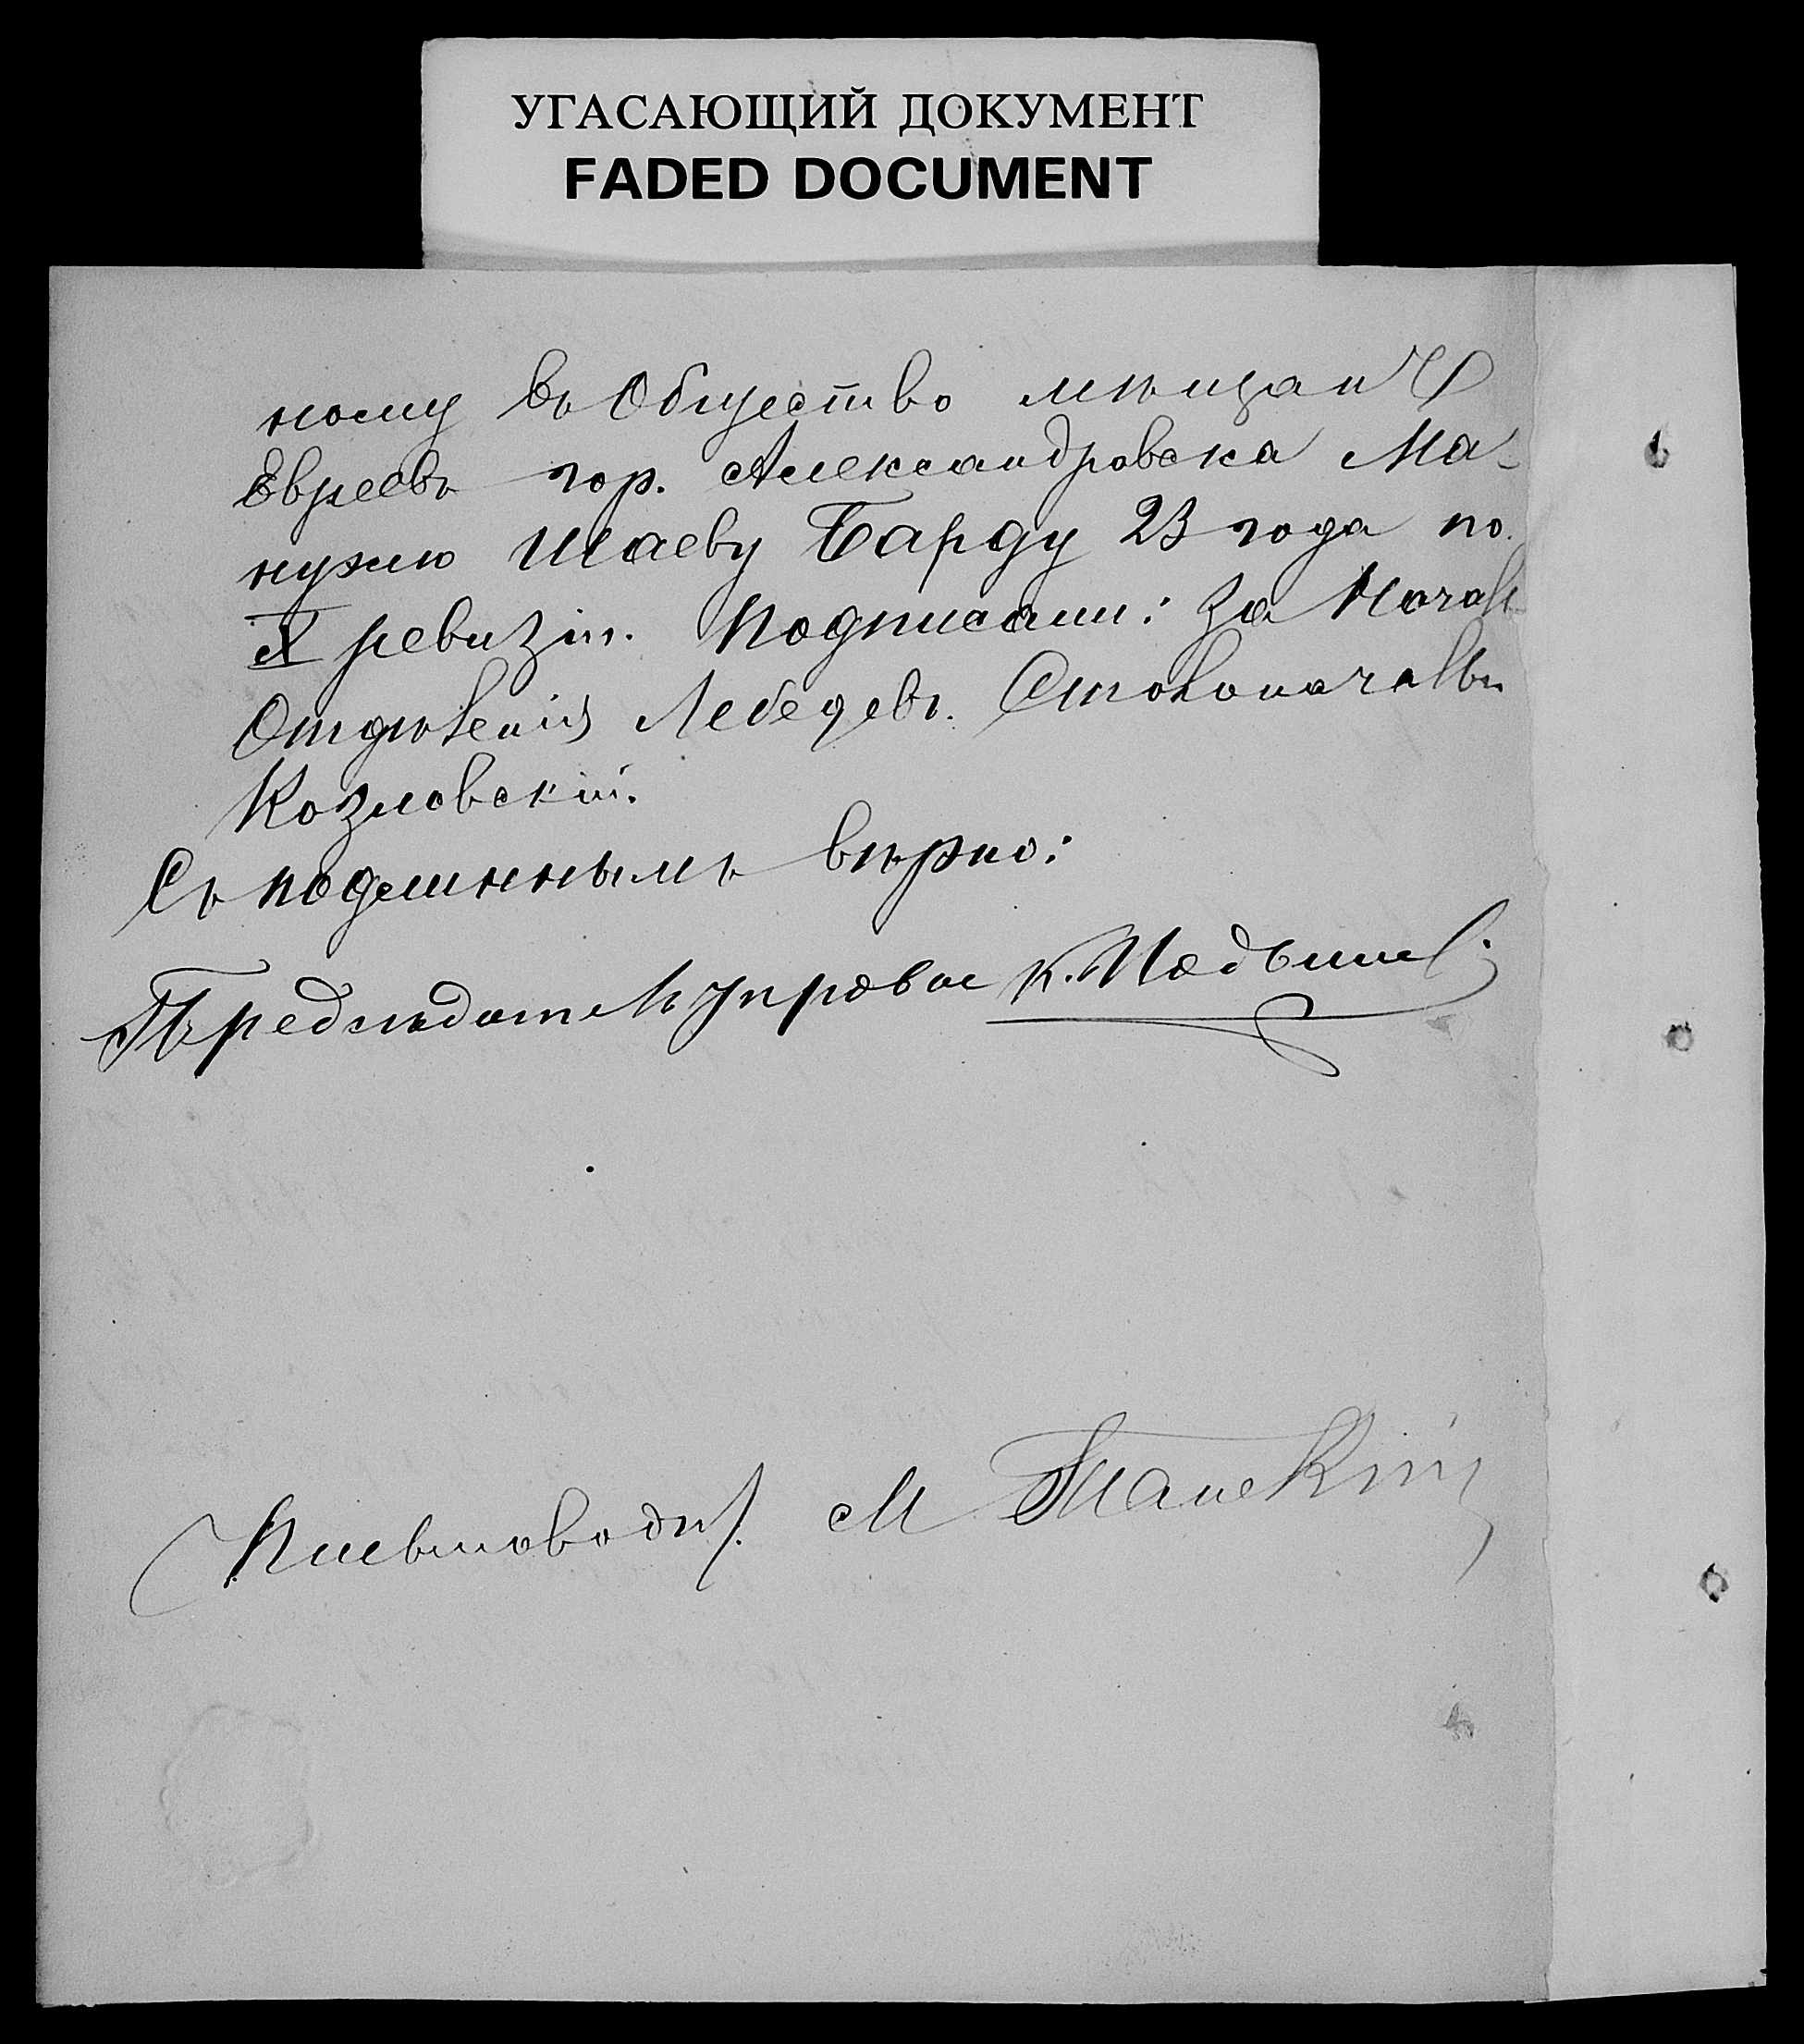 УГАСАЮЩИЙ ДОКУМЕНТ
FADED DOCUMENT
ному въ Общество мѣщанъ
Евреевъ гор. Александровска Ма-
нухлю Шаеву Барду 23 года по
X ревизіи. Подписали: За Начал
Отдѣленія Лебедевъ. Столоначальн
Козловскій.
Съ подлиннымъ вѣрно:
Предсѣдатель управы
Письмоводит. М